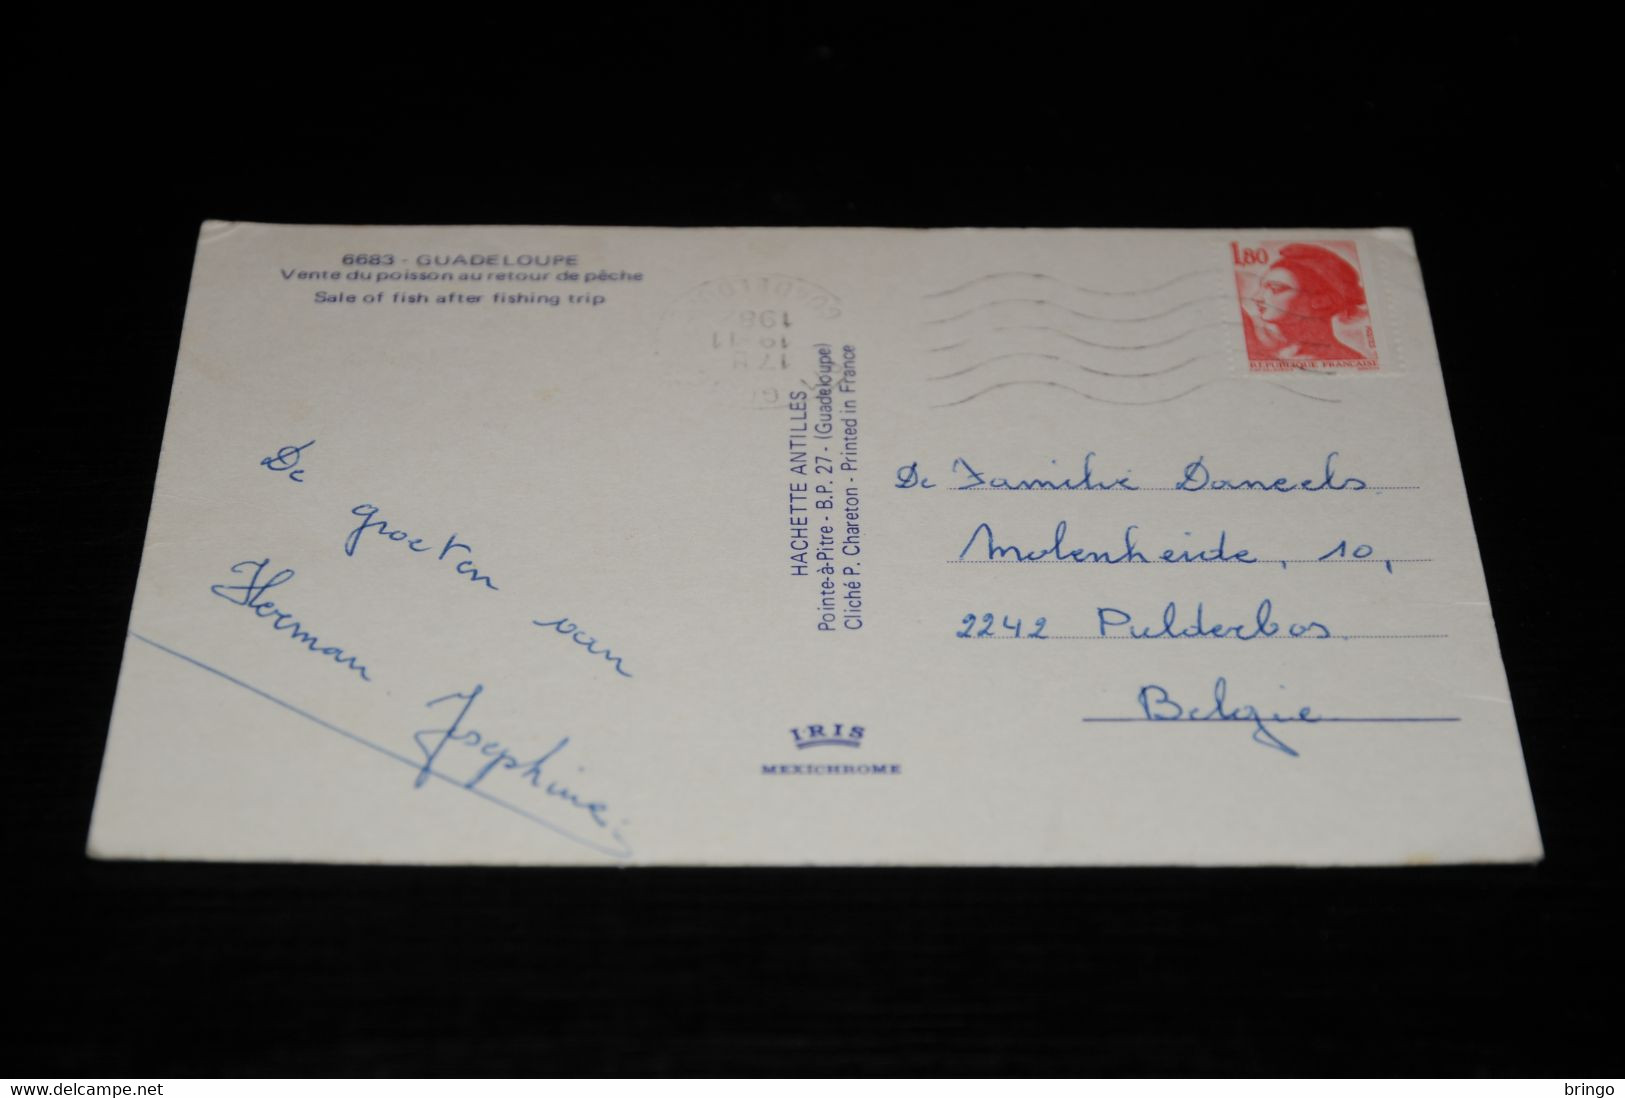 6683 - GUADELOUPE
Vente du poisson au retour de pêche
Sale of fish after fishing trip
1,80
RÉPUBLIQUE FRANÇAISE
HACHETTE ANTILLES
Pointe-à-Pitre - B.P. 27 - (Guadeloupe)
Cliché P. Chareton - Printed in France
De
groeten
van
Herman Josephine
De Familie Daneels
Molenheide, 10,
2242 Pulderbos
Belgie
IRIS
MEXICHROME
delcampe.net
bringo